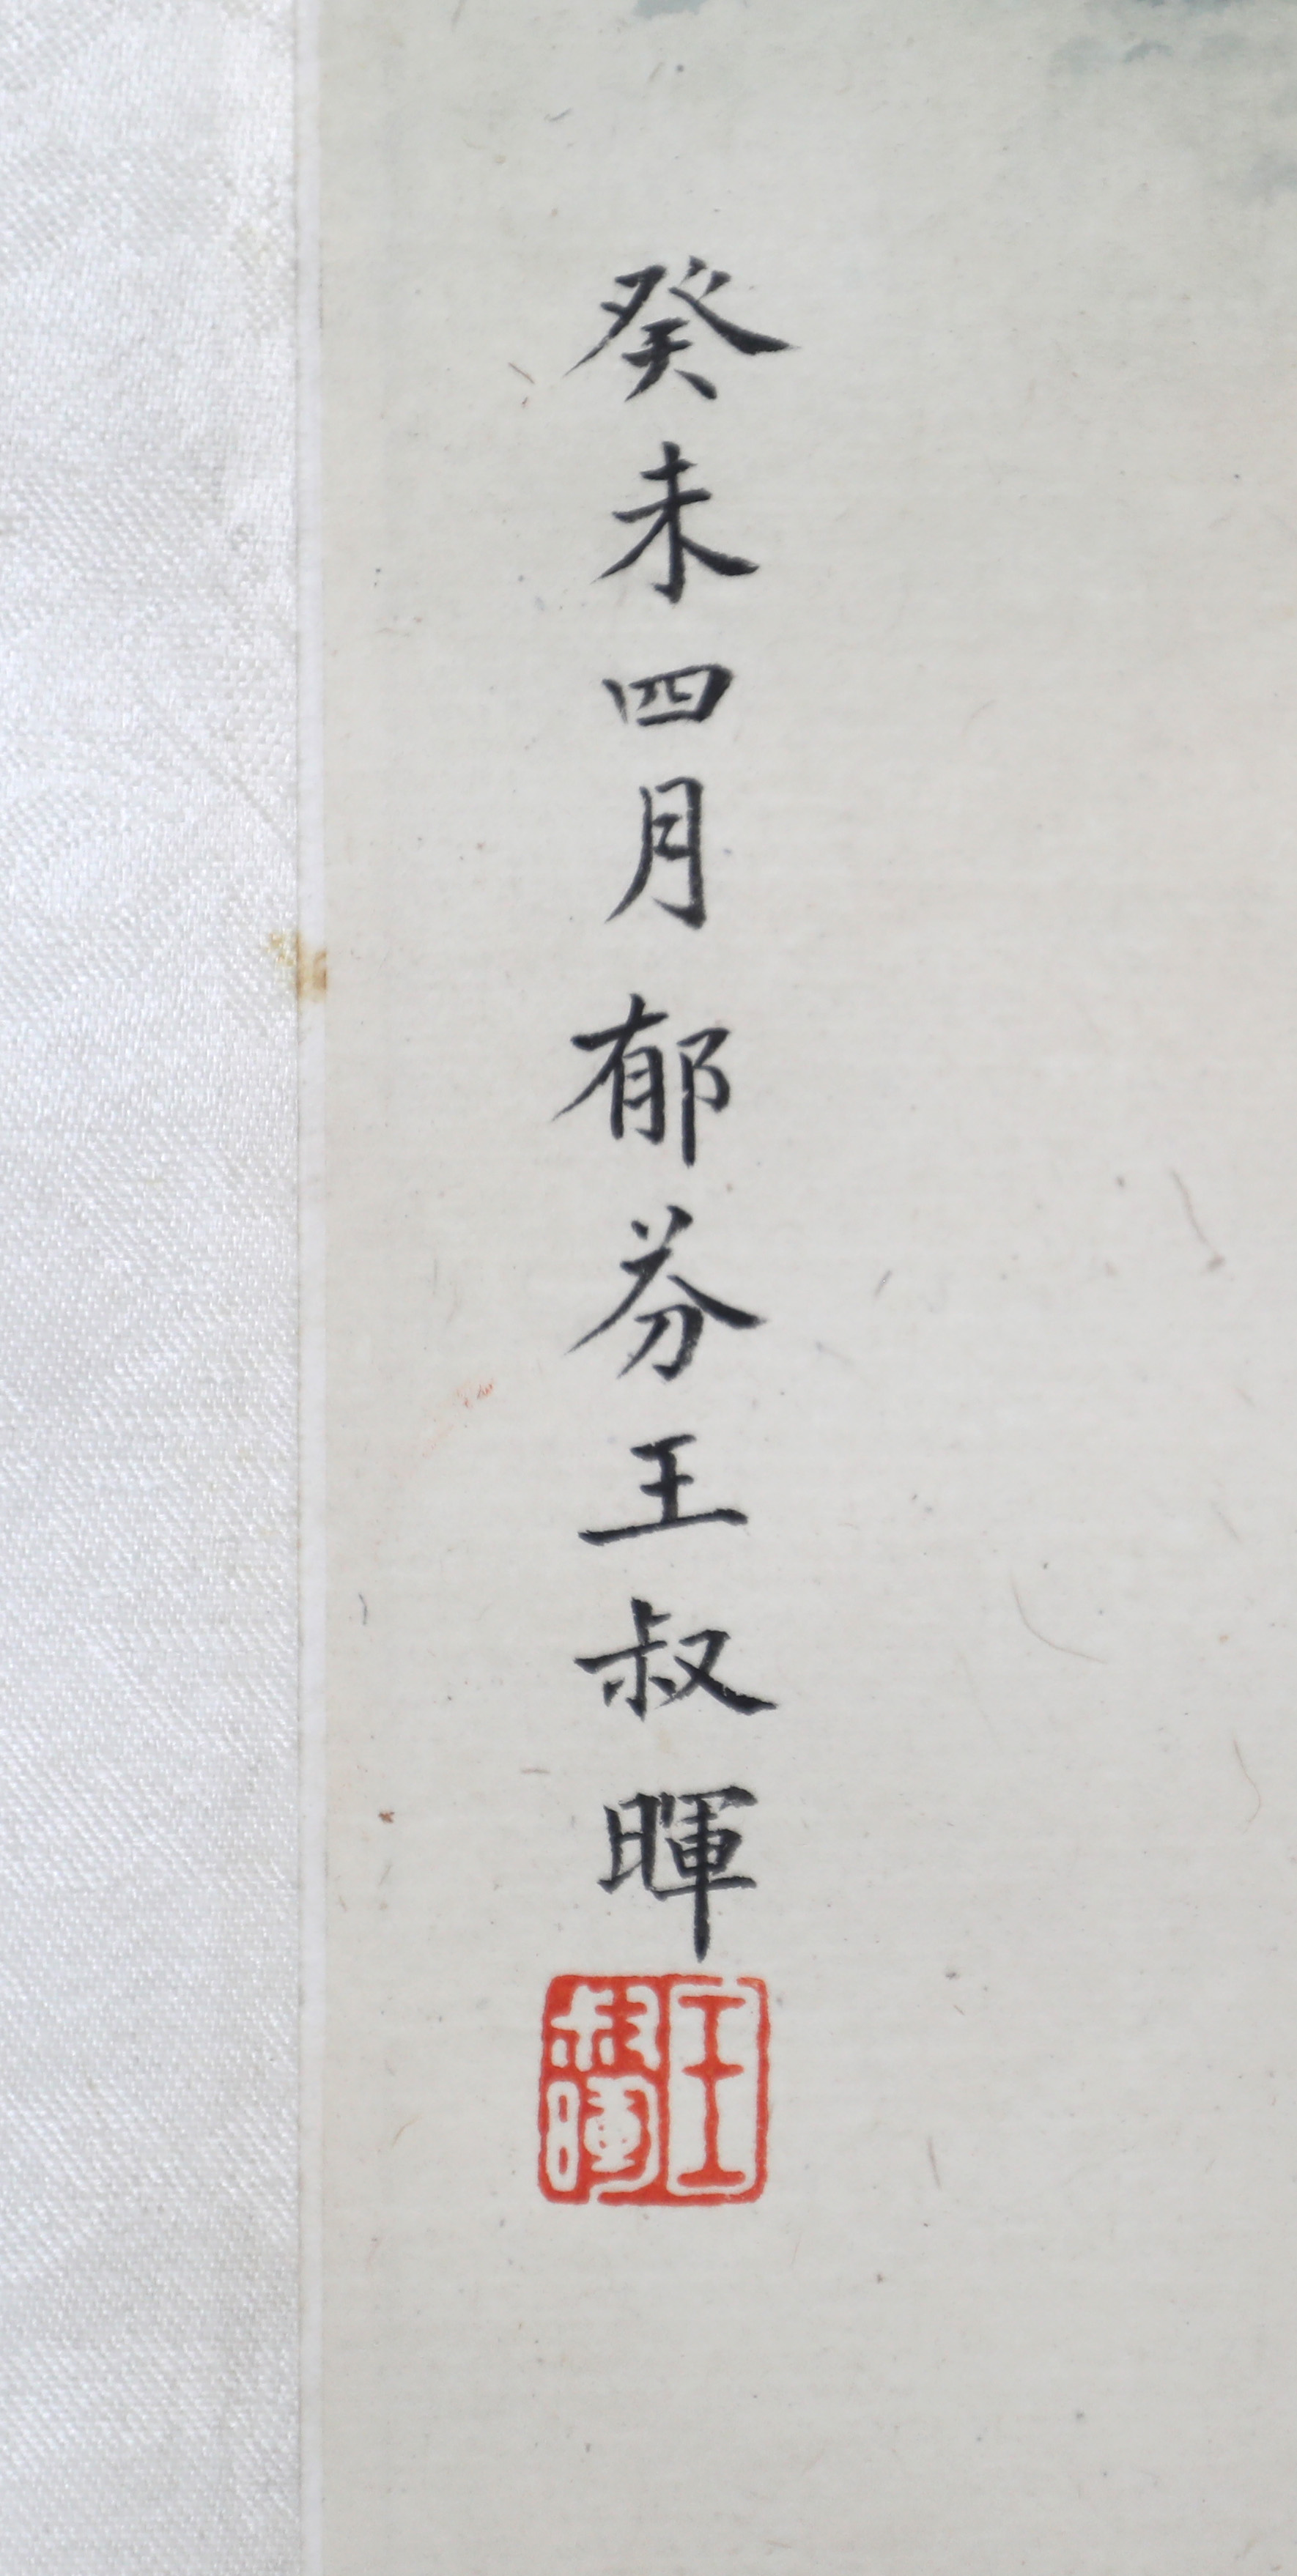 癸未四月郁芬王叔暉
王叔暉